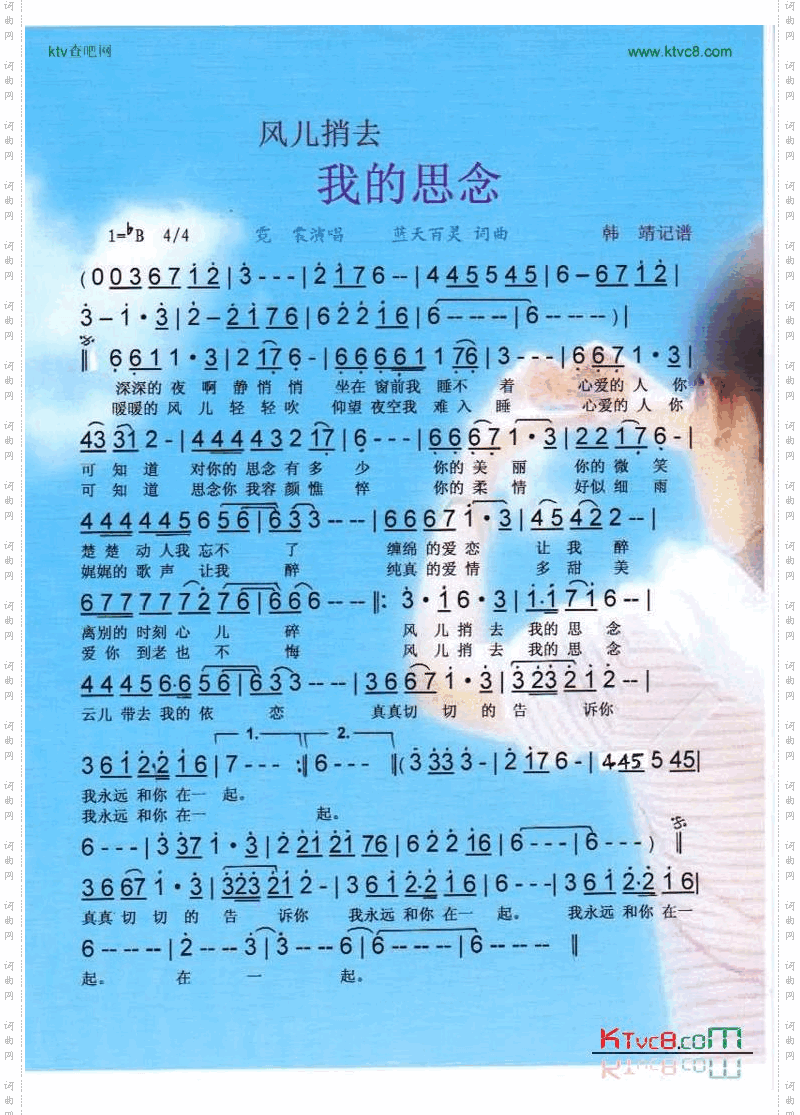 ktv查吧网 www.ktvc8.com
风儿捎去
我的思念
1=♭B 4/4 霓 裳演唱 蓝天百灵 词曲 韩 靖记谱
(0 0 3 6 7 1 2 | 3 - - - | 2 1 7 6 -- | 4 4 5 5 4 5 | 6 – 6 7 1 2 |
3 – 1 · 3 | 2 – 2 1 7 6 | 6 2 2 1 6 | 6 -- -- -- | 6 -- -- -- ) |
6 6 1 1 · 3 | 2 1 7 6 - | 6 6 6 6 6 1 1 7 6 | 3 - - - | 6 6 7 1 · 3 |
深深的 夜 啊 静 悄 悄 坐在 窗前我 睡不 着 心爱的 人 你
暖暖的 风 儿 轻 轻 吹 仰望 夜空我 难 入 睡 心爱的 人 你
4 3 3 1 2 - | 4 4 4 4 4 3 2 1 7 | 6 - - - | 6 6 6 7 1 · 3 | 2 2 1 7 6 - |
可 知 道 对你的 思念 有 多 少 你的 美 丽 你的 微 笑
可 知 道 思念你 我容 颜憔 悴 你的 柔 情 好似 细 雨
4 4 4 4 4 5 6 5 6 | 6 3 3 -- -- | 6 6 6 7 1 · 3 | 4 5 4 2 2 -- |
楚 楚 动 人我 忘不 了 缠绵 的爱 恋 让 我 醉
娓娓的 歌 声 让我 醉 纯真 的爱 情 多 甜 美
6 7 7 7 7 7 2 7 6 | 6 6 6 -- -- ‖: 3 · 1 6 · 3 | 1 · 1 7 1 6 -- |
离别的 时刻 心 儿 碎 风 儿 捎 去 我的 思 念
爱 你 到老 也 不 悔 风 儿 捎 去 我的 思 念
4 4 4 5 6 · 6 5 6 | 6 3 3 -- -- | 3 6 6 7 1 · 3 | 3 2 3 2 1 2 -- |
云儿 带去 我的 依 恋 真真切 切 的 告 诉你
1. 2.
3 6 1 2 · 2 1 6 | 7 - - - :‖ 6 - - - ‖ ( 3 3 3 3 - | 2 1 7 6 - | 4 4 5 5 4 5 |
我永远 和你 在一 起。
我永远 和你 在一 起。
6 - - - | 3 3 7 1 · 3 | 2 2 1 2 1 7 6 | 6 2 2 1 6 | 6 - - - | 6 - - - ) ‖
3 6 6 7 1 · 3 | 3 2 3 2 1 2 - | 3 6 1 2 · 2 1 6 | 6 - - - | 3 6 1 2 · 2 1 6 |
真真 切 切 的 告 诉你 我永远 和你 在一 起。 我永远 和你 在一
6 -- -- -- | 2 -- -- 3 | 3 -- -- 6 | 6 -- -- -- | 6 -- -- -- ‖
起。 在 一 起。
KTvc8.com